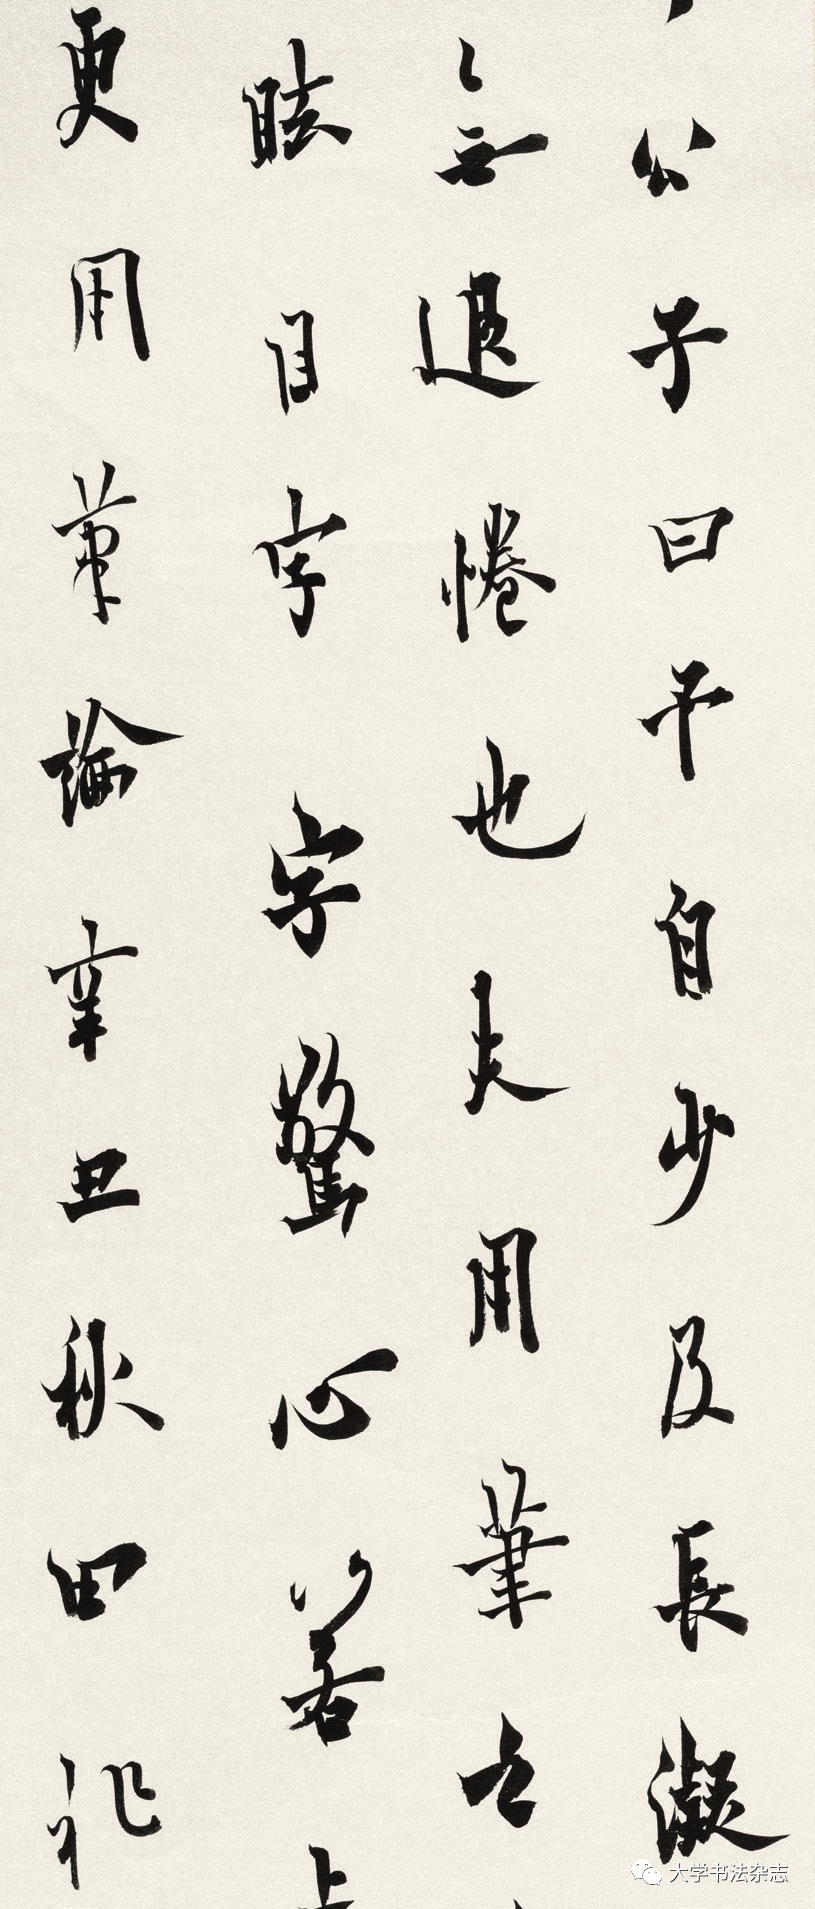 公子曰予自少及長凝
無退倦也夫用筆之
眩目字字驚心若
更用筆論辛丑秋田
大学书法杂志